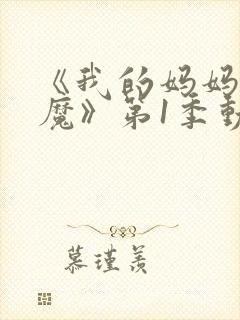 《我的妈妈
魔》第1季动
慕瑾羡